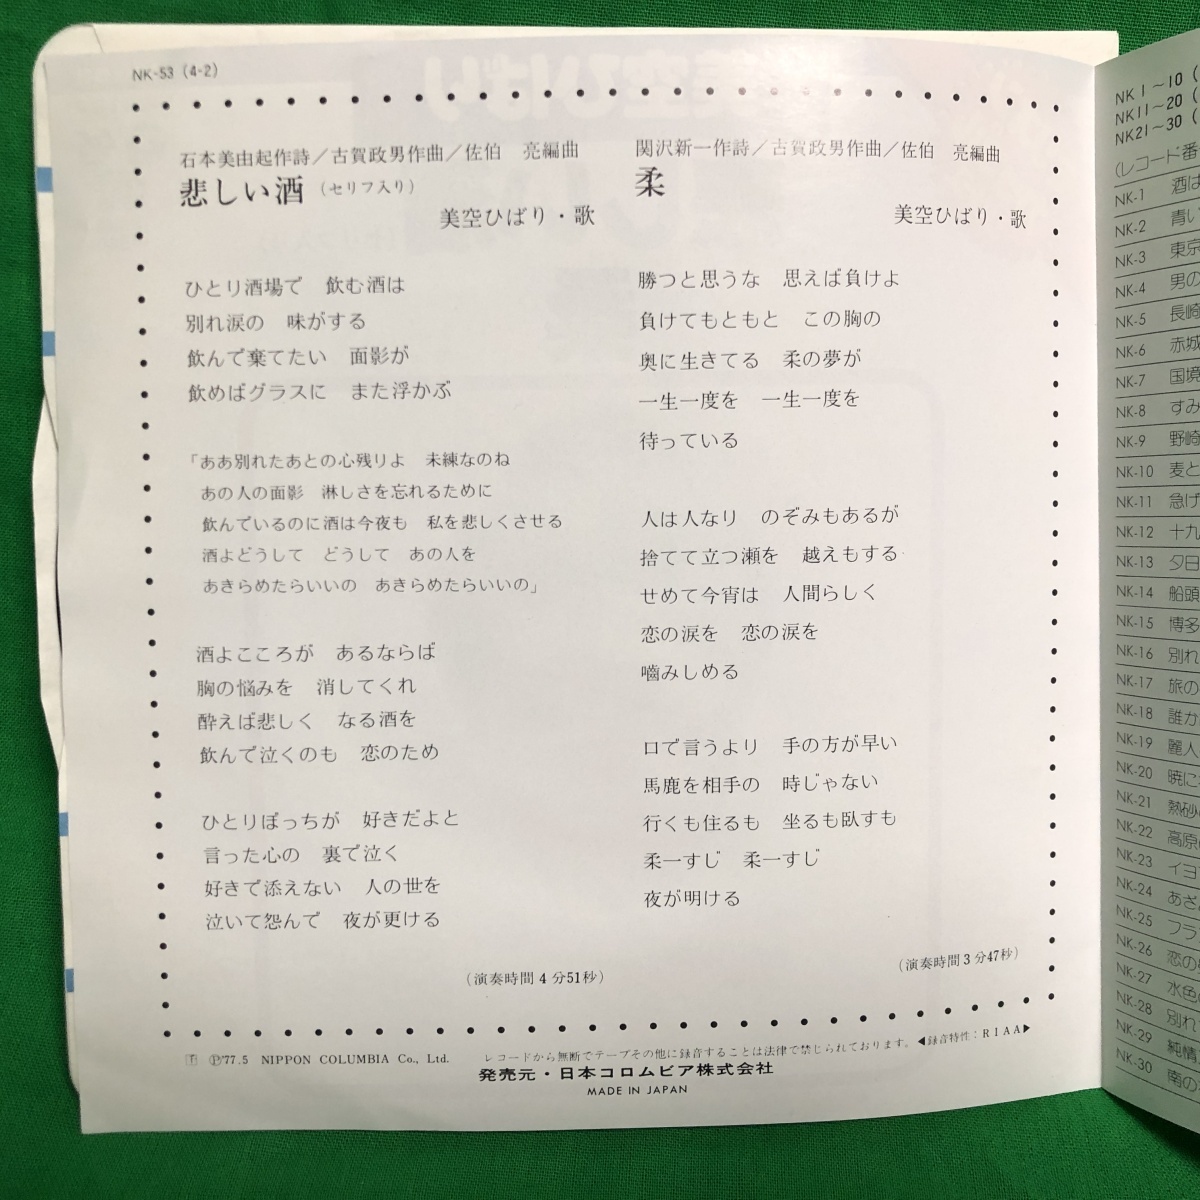 NK-53 (4-2)
石本美由起作詩／古賀政男作曲／佐伯　亮編曲
悲しい酒（セリフ入り）
美空ひばり・歌
ひとり酒場で　飲む酒は
別れ涙の　味がする
飲んで棄てたい　面影が
飲めばグラスに　また浮かぶ
「ああ別れたあとの心残りよ　未練なのね
あの人の面影　淋しさを忘れるために
飲んでいるのに酒は今夜も　私を悲しくさせる
酒よどうして　どうして　あの人を
あきらめたらいいの　あきらめたらいいの」
酒よこころが　あるならば
胸の悩みを　消してくれ
酔えば悲しく　なる酒を
飲んで泣くのも　恋のため
ひとりぼっちが　好きだよと
言った心の　裏で泣く
好きで添えない　人の世を
泣いて怨んで　夜が更ける
（演奏時間4分51秒）
関沢新一作詩／古賀政男作曲／佐伯　亮編曲
柔
美空ひばり・歌
勝つと思うな　思えば負けよ
負けてもともと　この胸の
奥に生きてる　柔の夢が
一生一度を　一生一度を
待っている
人は人なり　のぞみもあるが
捨てて立つ瀬を　越えもする
せめて今宵は　人間らしく
恋の涙を　恋の涙を
噛みしめる
口で言うより　手の方が早い
馬鹿を相手の　時じゃない
行くも住るも　坐るも臥すも
柔一すじ　柔一すじ
夜が明ける
（演奏時間3分47秒）
Ⓟ77.5 NIPPON COLUMBIA Co., Ltd.
レコードから無断でテープその他に録音することは法律で禁じられております。◀録音特性：RIAA▶
発売元・日本コロムビア株式会社
MADE IN JAPAN
NK1～10（
NK11～20（
NK21～30（
（レコード番
NK-1 酒は
NK-2 青い
NK-3 東京
NK-4 男の
NK-5 長崎
NK-6 赤城
NK-7 国境
NK-8 すみ
NK-9 野崎
NK-10 麦と
NK-11 急げ
NK-12 十九
NK-13 夕日
NK-14 船頭
NK-15 博多
NK-16 別れ
NK-17 旅の
NK-18 誰か
NK-19 麗人
NK-20 暁に
NK-21 熱砂
NK-22 高原
NK-23 イヨ
NK-24 あざ
NK-25 フラ
NK-26 恋の
NK-27 水色
NK-28 別れ
NK-29 純情
NK-30 南の